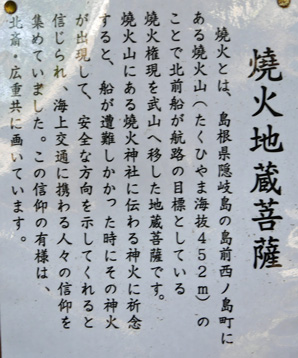 燒火地蔵菩薩
燒火とは、島根県隠岐島の島前西ノ島町に
ある燒火山（たくひやま海抜４５２ｍ）の
ことで北前船が航路の目標としている
燒火権現を武山へ移した地蔵菩薩です。
燒火山にある燒火神社に伝わる神火に祈念
すると、船が遭難しかかった時にその神火
が出現して、安全な方向を示してくれると
信じられ、海上交通に携わる人々の信仰を
集めていました。この信仰の有様は、
北斎・広重共に画いています。